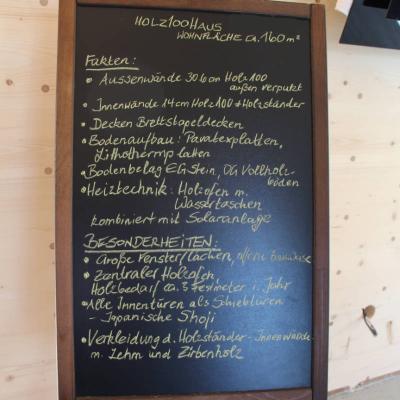 HOLZ100HAUS
WOHNFLÄCHE ca. 160 m²
FAKTEN:
• AUSSENWÄNDE 30,6 cm HOLZ100
außen verputzt
• INNENWÄNDE 14 cm HOLZ100 + HOLZSTÄNDER
• DECKEN BRETTSTAPELDECKEN
• BODENAUFBAU: PAVATEXPLATTEN,
LITHOTHERMPLATTEN
• BODENBELAG EG STEIN, OG VOLLHOLZ-
BÖDEN
• HEIZTECHNIK: HOLZOFEN m.
WASSERTASCHEN
KOMBINIERT MIT SOLARANLAGE
BESONDERHEITEN:
• GROßE FENSTERFLÄCHEN, offene BAUWEISE
• ZENTRALER HOLZOFEN,
HOLZBEDARF ca. 3 FESTMETER i. JAHR
• ALLE INNENTÜREN ALS SCHIEBTÜREN
- JAPANISCHE SHOJI
• VERKLEIDUNG d. HOLZSTÄNDER-INNENWÄNDE
m. LEHM UND ZIRBENHOLZ